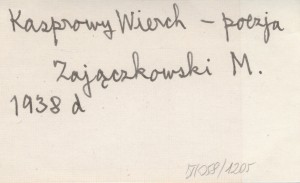 Kasprowy Wierch – poezja
Zajączkowski M.
1938 d